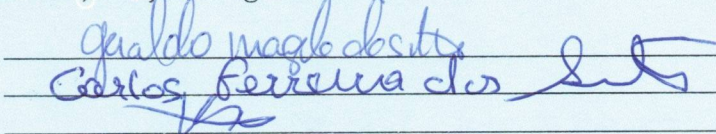 geraldo magela dos
Carlos Ferreira dos Santos